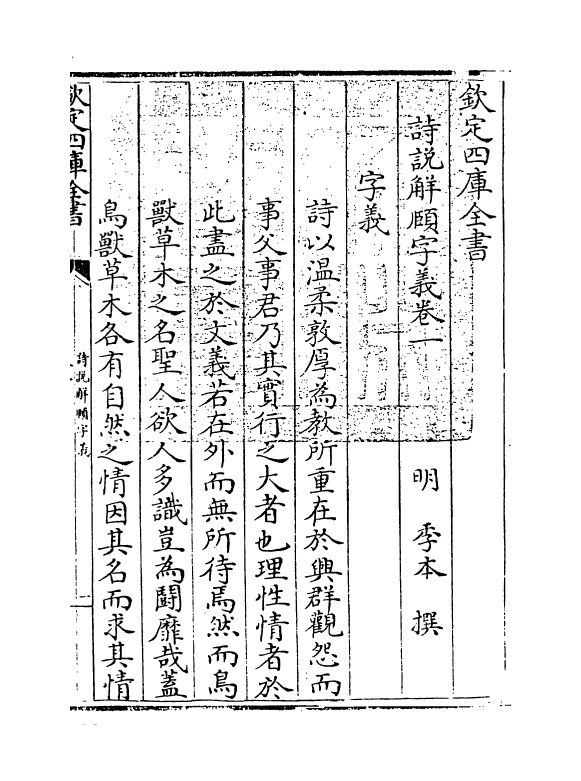 欽定四庫全書
詩說解頤字義卷一
明 季本 撰
字義
詩以溫柔敦厚為教所重在於興群觀怨而
事父事君乃其實行之大者也理性情者於
此盡之於文義若在外而無所待焉然而鳥
獸草木之名聖人欲人多識豈為鬪靡哉蓋
鳥獸草木各有自然之情因其名而求其情
欽定四庫全書
詩說解頤字義
一